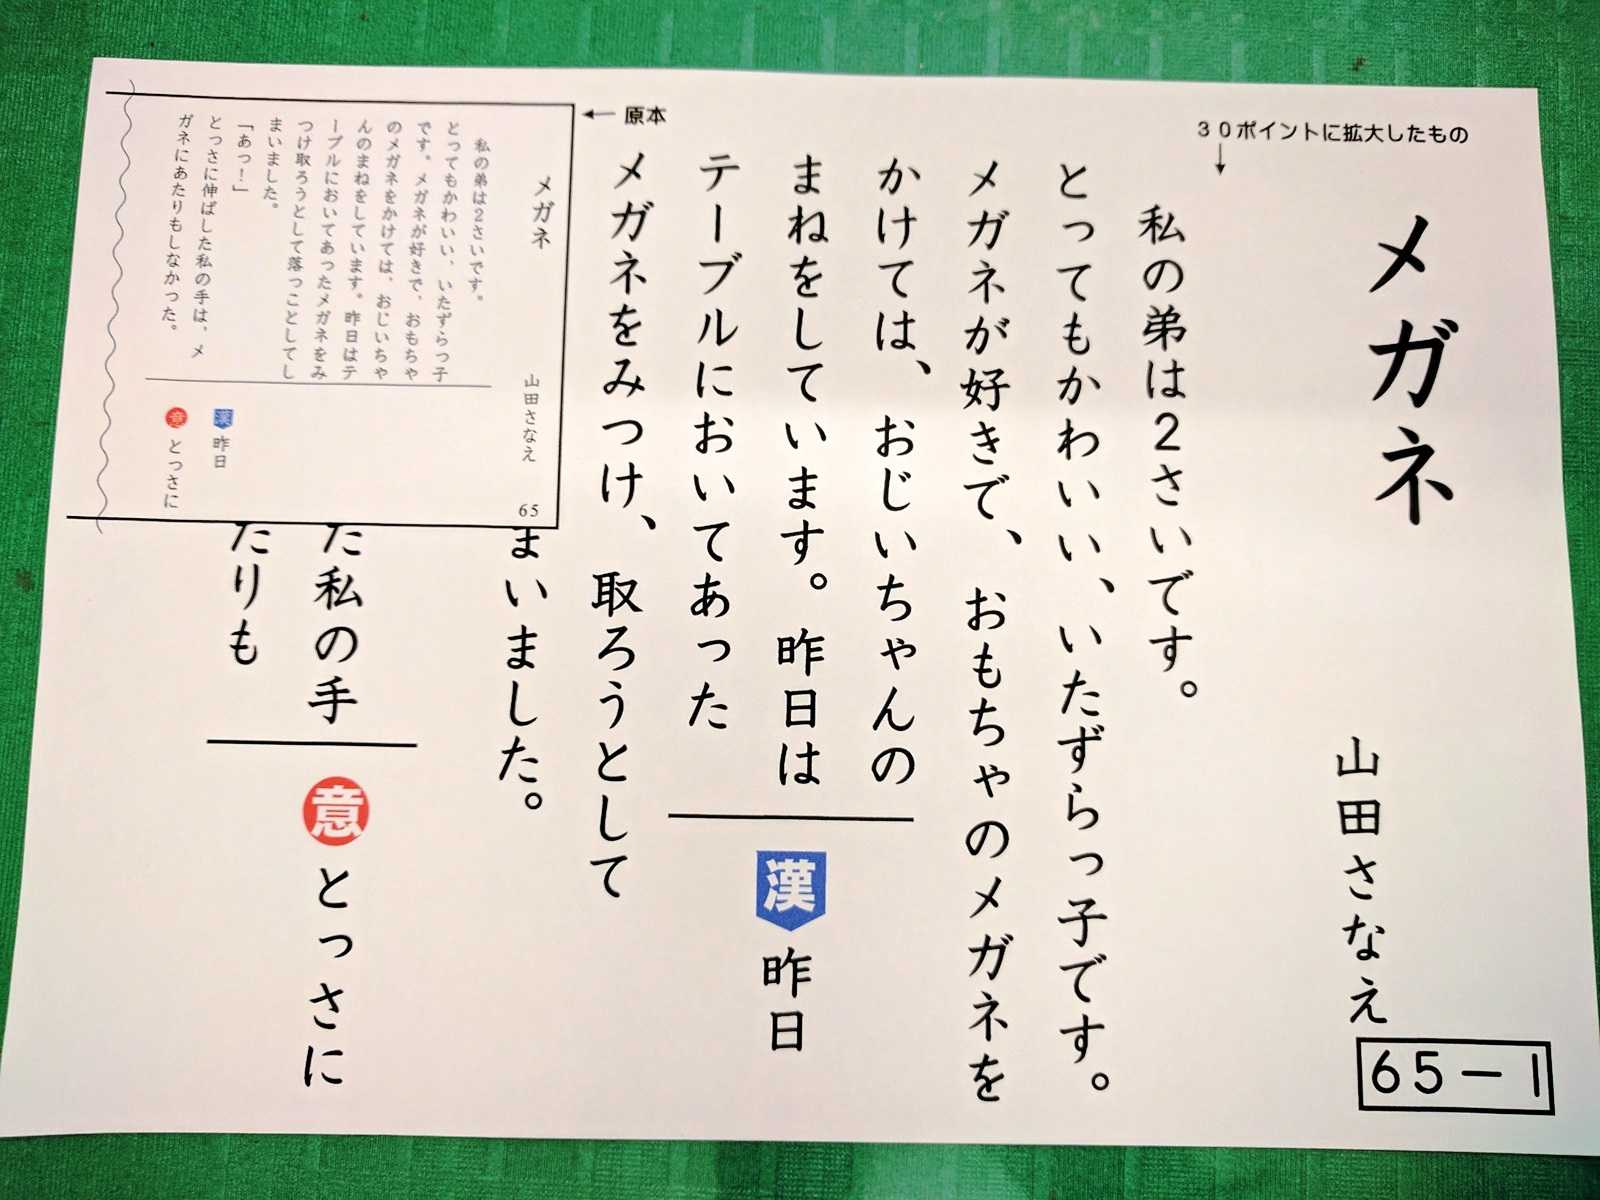 30ポイントに拡大したもの
メガネ
山田さなえ
65－1
私の弟は2さいです。
とってもかわいい、いたずらっ子です。
メガネが好きで、おもちゃのメガネを
かけては、おじいちゃんの
まねをしています。昨日は
テーブルにおいてあった
メガネをみつけ、取ろうとして
まいました。
た私の手
たりも
漢 昨日
意 とっさに
原本
メガネ
山田さなえ
65
私の弟は2さいです。
とってもかわいい、いたずらっ子
です。メガネが好きで、おもちゃ
のメガネをかけては、おじいちゃ
んのまねをしています。昨日はテ
ーブルにおいてあったメガネをみ
つけ取ろうとして落っことしてし
まいました。
「あっ！」
とっさに伸ばした私の手は、メ
ガネにあたりもしなかった。
漢 昨日
意 とっさに